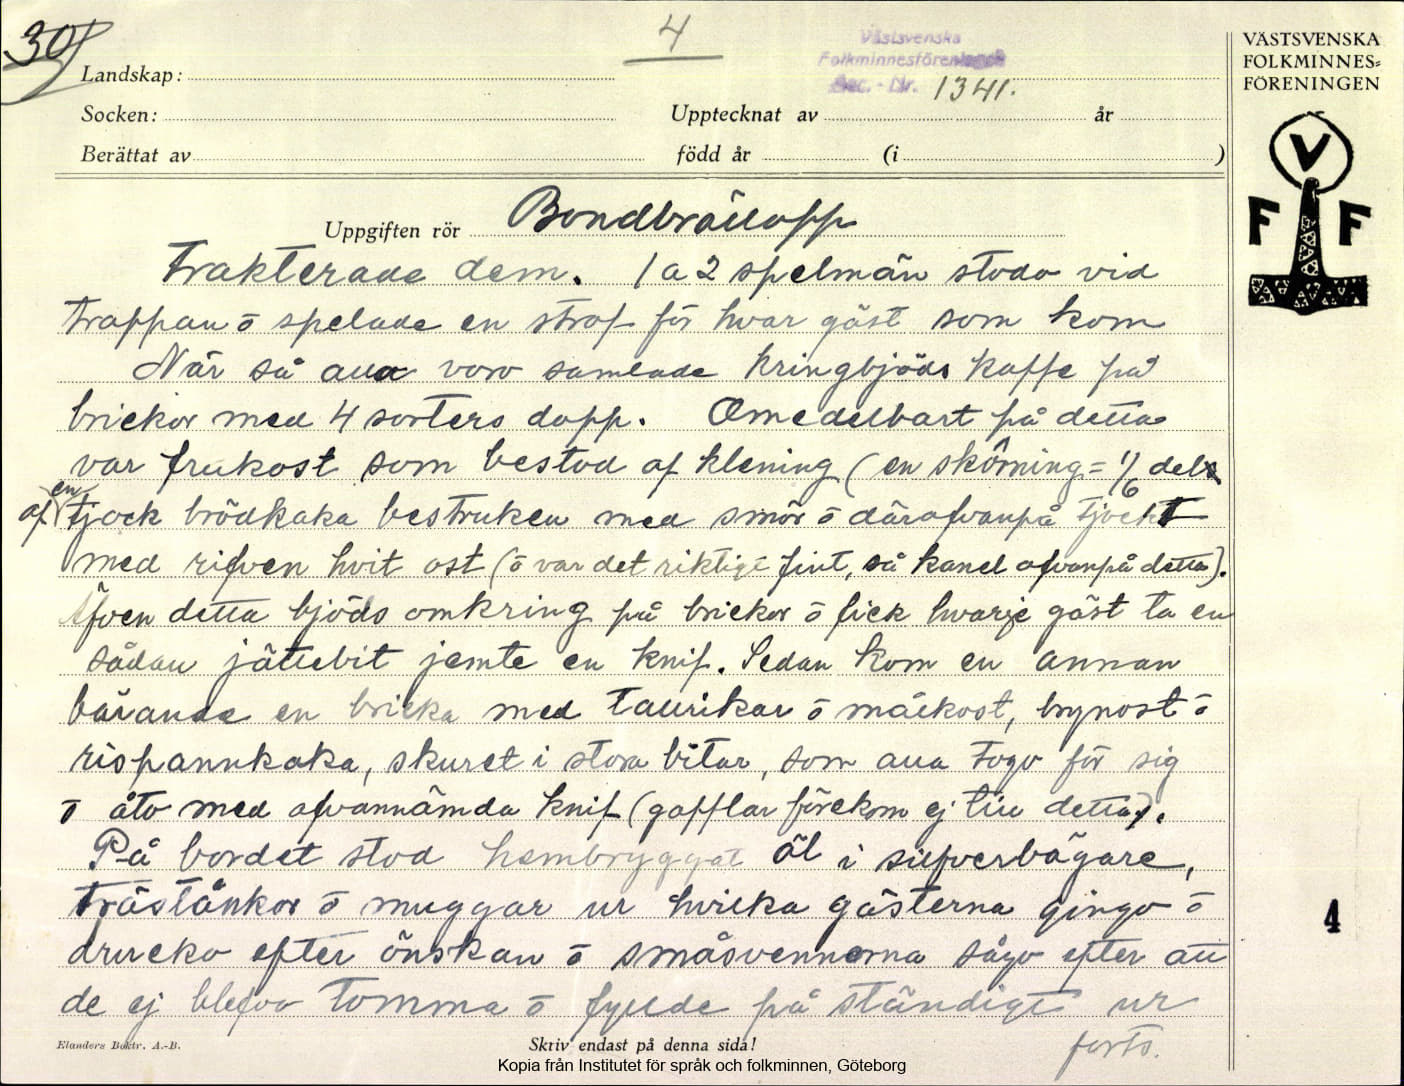 30
4
Västsvenska
Folkminnesföreningen
Acc. - Nr. 1341.
VÄSTSVENSKA
FOLKMINNES=
FÖRENINGEN
V
F F
Landskap:
Socken: Upptecknat av år
Berättat av född år (i )
Uppgiften rör Bondbröllopp
trakterade dem. 1 a 2 spelmän stodo vid
trappan ō spelade en strof för hvar gäst som kom
När så alla voro samlade kringbjöds kaffe på
brickor med 4 sorters dopp. Omedelbart på detta
var frukost som bestod af klening (en skörning = 1/6 dels
af en tjock brödkaka bestruken med smör ō därofvanpå tjockt
med rifven hvit ost (ō var det riktigt fint, så kanel ofvanpå detta).
Äfven detta bjöds omkring på brickor ō fick hvarje gäst ta en
sådan jättebit jemte en knif. Sedan kom en annan
bärande en bricka med tallrikar ō mälkost, brynost ō
rispannkaka, skuret i stora bitar, som alla togo för sig
ō åto med ofvannämda knif (gafflar förekom ej till detta).
På bordet stod hembryggat öl i silfverbägare,
trästånkor ō muggar ur hvilka gästerna gingo ō
drucko efter önskan ō småsvennerna sågo efter att
de ej blefvo tomma ō fyllde på ständigt ur
forts.
4
Elanders Boktr. A.-B.
Skriv endast på denna sida!
Kopia från Institutet för språk och folkminnen, Göteborg